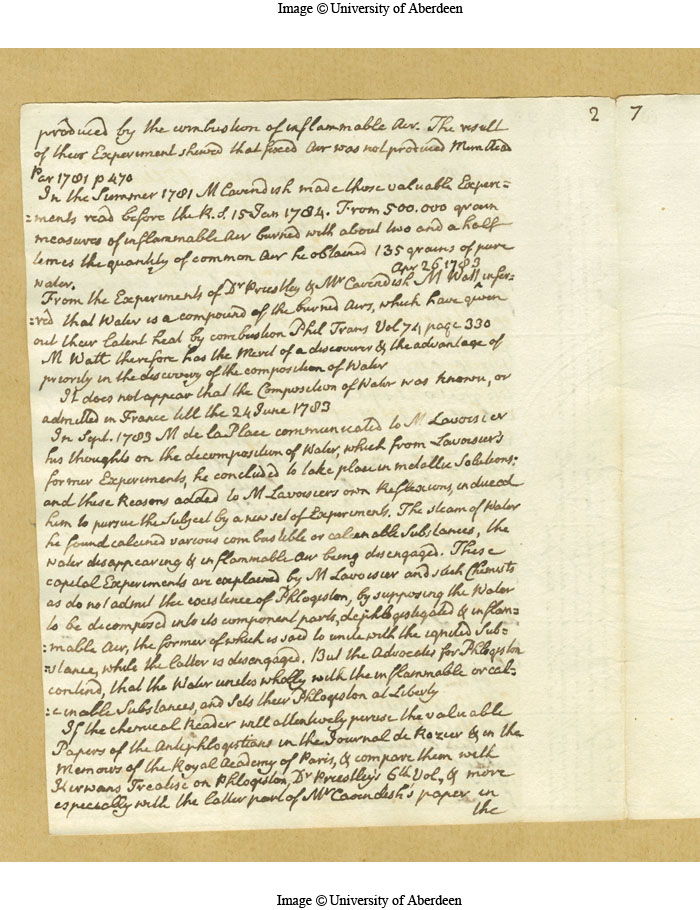 Image © University of Aberdeen
2 7
produced by the combustion of inflammable Air. The result
of their Experiment shewed that fixed Air was not produced Mem Acad
Par 1781 p 470
In the Summer 1781 M Cavendish made those valuable Experi-
:ments read before the R.S. 15 Jan 1784. From 500.000 grain
measures of inflammable Air burned with about two and a half
times the quantity of common Air he obtained 135 grains of pure
water.
Apr 26 1783
From the Experiments of Dr Priestley & Mr Cavendish M Watt ^ infer-
:red that Water is a compound of the burned Airs, which have given
out their latent heat by combustion Phil Trans Vol 74 page 330
M Watt therefore has the Merit of a discoverer & the advantage of
priority in the discovery of the composition of Water
It does not appear that the Composition of Water was known, or
admitted in France till the 24 June 1783
In Sept. 1783 M de la Place communicated to M Lavoisier
his thoughts on the decomposition of Water, which from Lavoisier's
former Experiments, he concluded to take place in metallic Solutions;
and these Reasons added to M Lavoisiers own Reflexions, induced
him to pursue the Subject by a new set of Experiments. The steam of Water
he found calcined various combustible or calcinable Substances, the
water disappearing & inflammable Air being disengaged. These
capital Experiments are explained by M Lavoisier and such Chemists
as do not admit the existence of Phlogiston, by supposing the Water
to be decomposed into its component parts, dephlogisticated & inflam-
:mable Air, the former of which is said to unite with the ignited Sub-
:stance, while the latter is disengaged. But the Advocates for Phlogiston
contend, that the Water unites wholly with the inflammable or cal-
:cinable Substances, and sets their Phlogiston at Liberty
If the chemical Reader will attentively peruse the valuable
Papers of the Antiphlogistians in the Journal de Rozier & in the
Memoirs of the Royal Academy of Paris, & compare them with
Kirwans Treatise on Phlogiston, Dr Priestley's 6th Vol, & more
especially with the latter part of Mr Cavendish's paper in
the
Image © University of Aberdeen